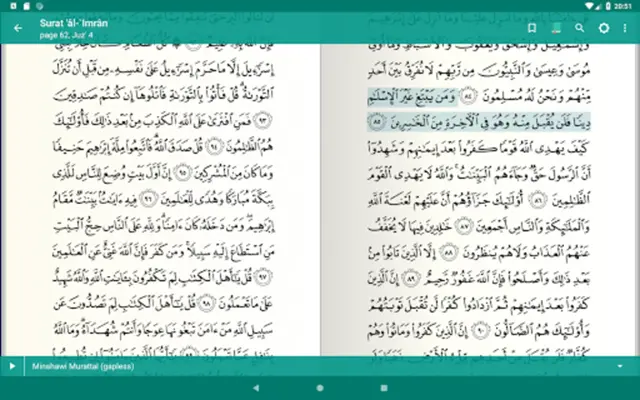 20:51
Surat 'āl-'Imrān
page 62, Juz' 4
وَإِسْمَٰعِيلَ وَإِسْحَٰقَ وَيَعْقُوبَ وَٱلْأَسْبَاطِ وَمَآ أُوتِىَ
مُوسَىٰ وَعِيسَىٰ وَٱلنَّبِيُّونَ مِن رَّبِّهِمْ لَا نُفَرِّقُ بَيْنَ أَحَدٍ
مِّنْهُمْ وَنَحْنُ لَهُۥ مُسْلِمُونَ ٨٤ وَمَن يَبْتَغِ غَيْرَ ٱلْإِسْلَٰمِ
دِينًا فَلَن يُقْبَلَ مِنْهُ وَهُوَ فِى ٱلْءَاخِرَةِ مِنَ ٱلْخَٰسِرِينَ ٨٥
كَيْفَ يَهْدِى ٱللَّهُ قَوْمًا كَفَرُوا۟ بَعْدَ إِيمَٰنِهِمْ وَشَهِدُوٓا۟
أَنَّ ٱلرَّسُولَ حَقٌّ وَجَآءَهُمُ ٱلْبَيِّنَٰتُ ۚ وَٱللَّهُ لَا يَهْدِى ٱلْقَوْمَ
ٱلظَّٰلِمِينَ ٨٦ أُو۟لَٰٓئِكَ جَزَآؤُهُمْ أَنَّ عَلَيْهِمْ لَعْنَةَ ٱللَّهِ
وَٱلْمَلَٰٓئِكَةِ وَٱلنَّاسِ أَجْمَعِينَ ٨٧ خَٰلِدِينَ فِيهَا لَا يُخَفَّفُ
عَنْهُمُ ٱلْعَذَابُ وَلَا هُمْ يُنظَرُونَ ٨٨ إِلَّا ٱلَّذِينَ تَابُوا۟ مِنۢ
بَعْدِ ذَٰلِكَ وَأَصْلَحُوا۟ فَإِنَّ ٱللَّهَ غَفُورٌ رَّحِيمٌ ٨٩ إِنَّ ٱلَّذِينَ
كَفَرُوا۟ بَعْدَ إِيمَٰنِهِمْ ثُمَّ ٱزْدَادُوا۟ كُفْرًا لَّن تُقْبَلَ تَوْبَتُهُمْ
وَأُو۟لَٰٓئِكَ هُمُ ٱلضَّآلُّونَ ٩٠ إِنَّ ٱلَّذِينَ كَفَرُوا۟ وَمَاتُوا۟ وَهُمْ
إِسْرَٰٓءِيلَ إِلَّا مَا حَرَّمَ إِسْرَٰٓءِيلُ عَلَىٰ نَفْسِهِۦ مِن قَبْلِ أَن تُنَزَّلَ
ٱلتَّوْرَىٰةُ ۗ قُلْ فَأْتُوا۟ بِٱلتَّوْرَىٰةِ فَٱتْلُوهَآ إِن كُنتُمْ صَٰدِقِينَ
٩٣ فَمَنِ ٱفْتَرَىٰ عَلَى ٱللَّهِ ٱلْكَذِبَ مِنۢ بَعْدِ ذَٰلِكَ فَأُو۟لَٰٓئِكَ
هُمُ ٱلظَّٰلِمُونَ ٩٤ قُلْ صَدَقَ ٱللَّهُ ۗ فَٱتَّبِعُوا۟ مِلَّةَ إِبْرَٰهِيمَ حَنِيفًا
وَمَا كَانَ مِنَ ٱلْمُشْرِكِينَ ٩٥ إِنَّ أَوَّلَ بَيْتٍ وُضِعَ لِلنَّاسِ لَلَّذِى
بِبَكَّةَ مُبَارَكًا وَهُدًى لِّلْعَٰلَمِينَ ٩٦ فِيهِ ءَايَٰتٌۢ بَيِّنَٰتٌ مَّقَامُ
إِبْرَٰهِيمَ ۖ وَمَن دَخَلَهُۥ كَانَ ءَامِنًا ۗ وَلِلَّهِ عَلَى ٱلنَّاسِ حِجُّ ٱلْبَيْتِ
مَنِ ٱسْتَطَاعَ إِلَيْهِ سَبِيلًا ۚ وَمَن كَفَرَ فَإِنَّ ٱللَّهَ غَنِىٌّ عَنِ ٱلْعَٰلَمِينَ
٩٧ قُلْ يَٰٓأَهْلَ ٱلْكِتَٰبِ لِمَ تَكْفُرُونَ بِـَٔايَٰتِ ٱللَّهِ وَٱللَّهُ شَهِيدٌ
عَلَىٰ مَا تَعْمَلُونَ ٩٨ قُلْ يَٰٓأَهْلَ ٱلْكِتَٰبِ لِمَ تَصُدُّونَ عَن
سَبِيلِ ٱللَّهِ مَنْ ءَامَنَ تَبْغُونَهَا عِوَجًا وَأَنتُمْ شُهَدَآءُ ۗ وَمَا ٱللَّهُ
Minshawi Murattal (gapless)